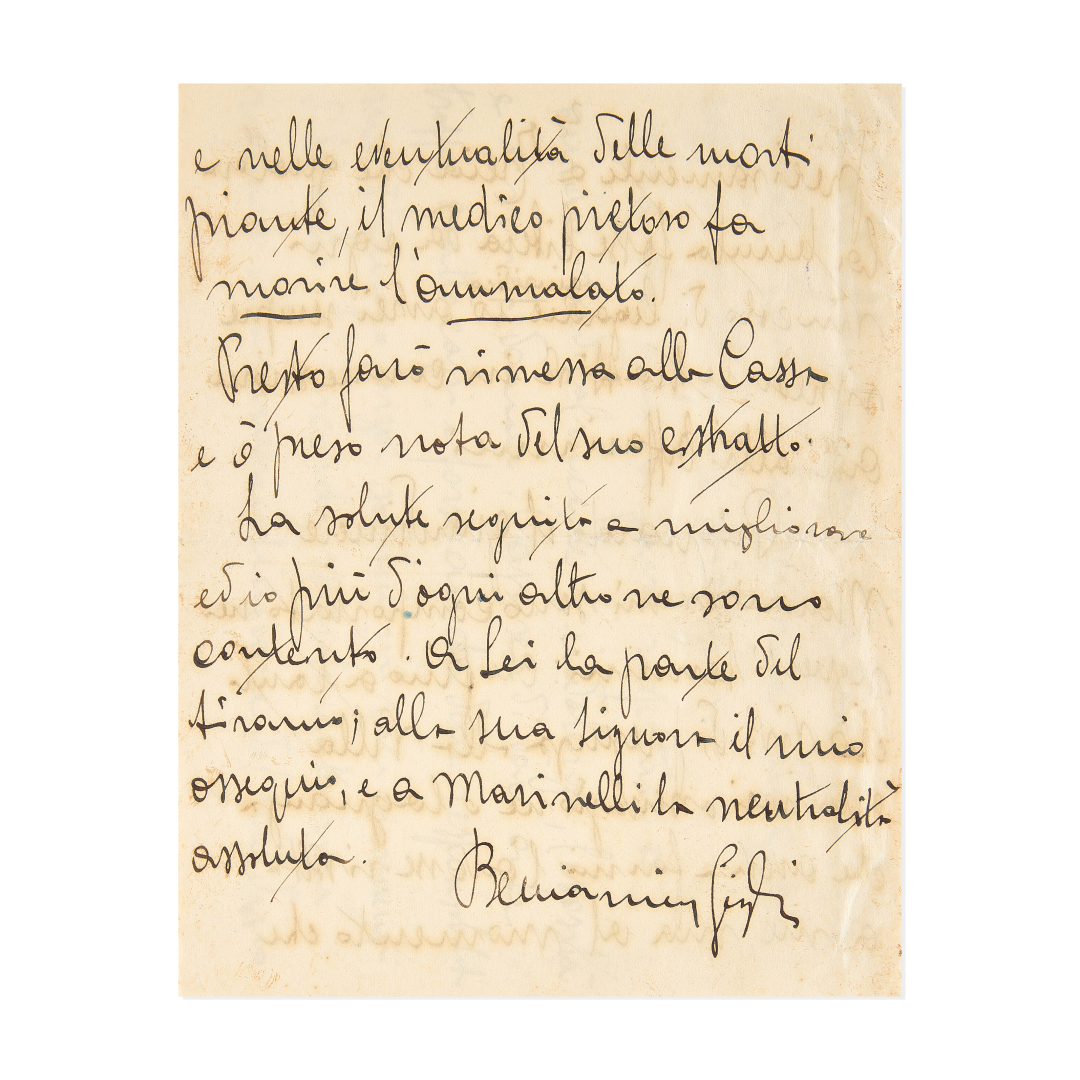 e nelle eventualità delle morti
piante, il medico pietoso fa
morire l'ammalato.
Presto farò rimessa alla Cassa
e ò preso nota del suo estratto.
La salute seguita a migliorare
ed io più d'ogni altro ne sono
contento. A Lei la parte del
tiranno; alla sua Signora il mio
ossequio, e a Marinelli la neutralità
assoluta.
Beniamino Gigli